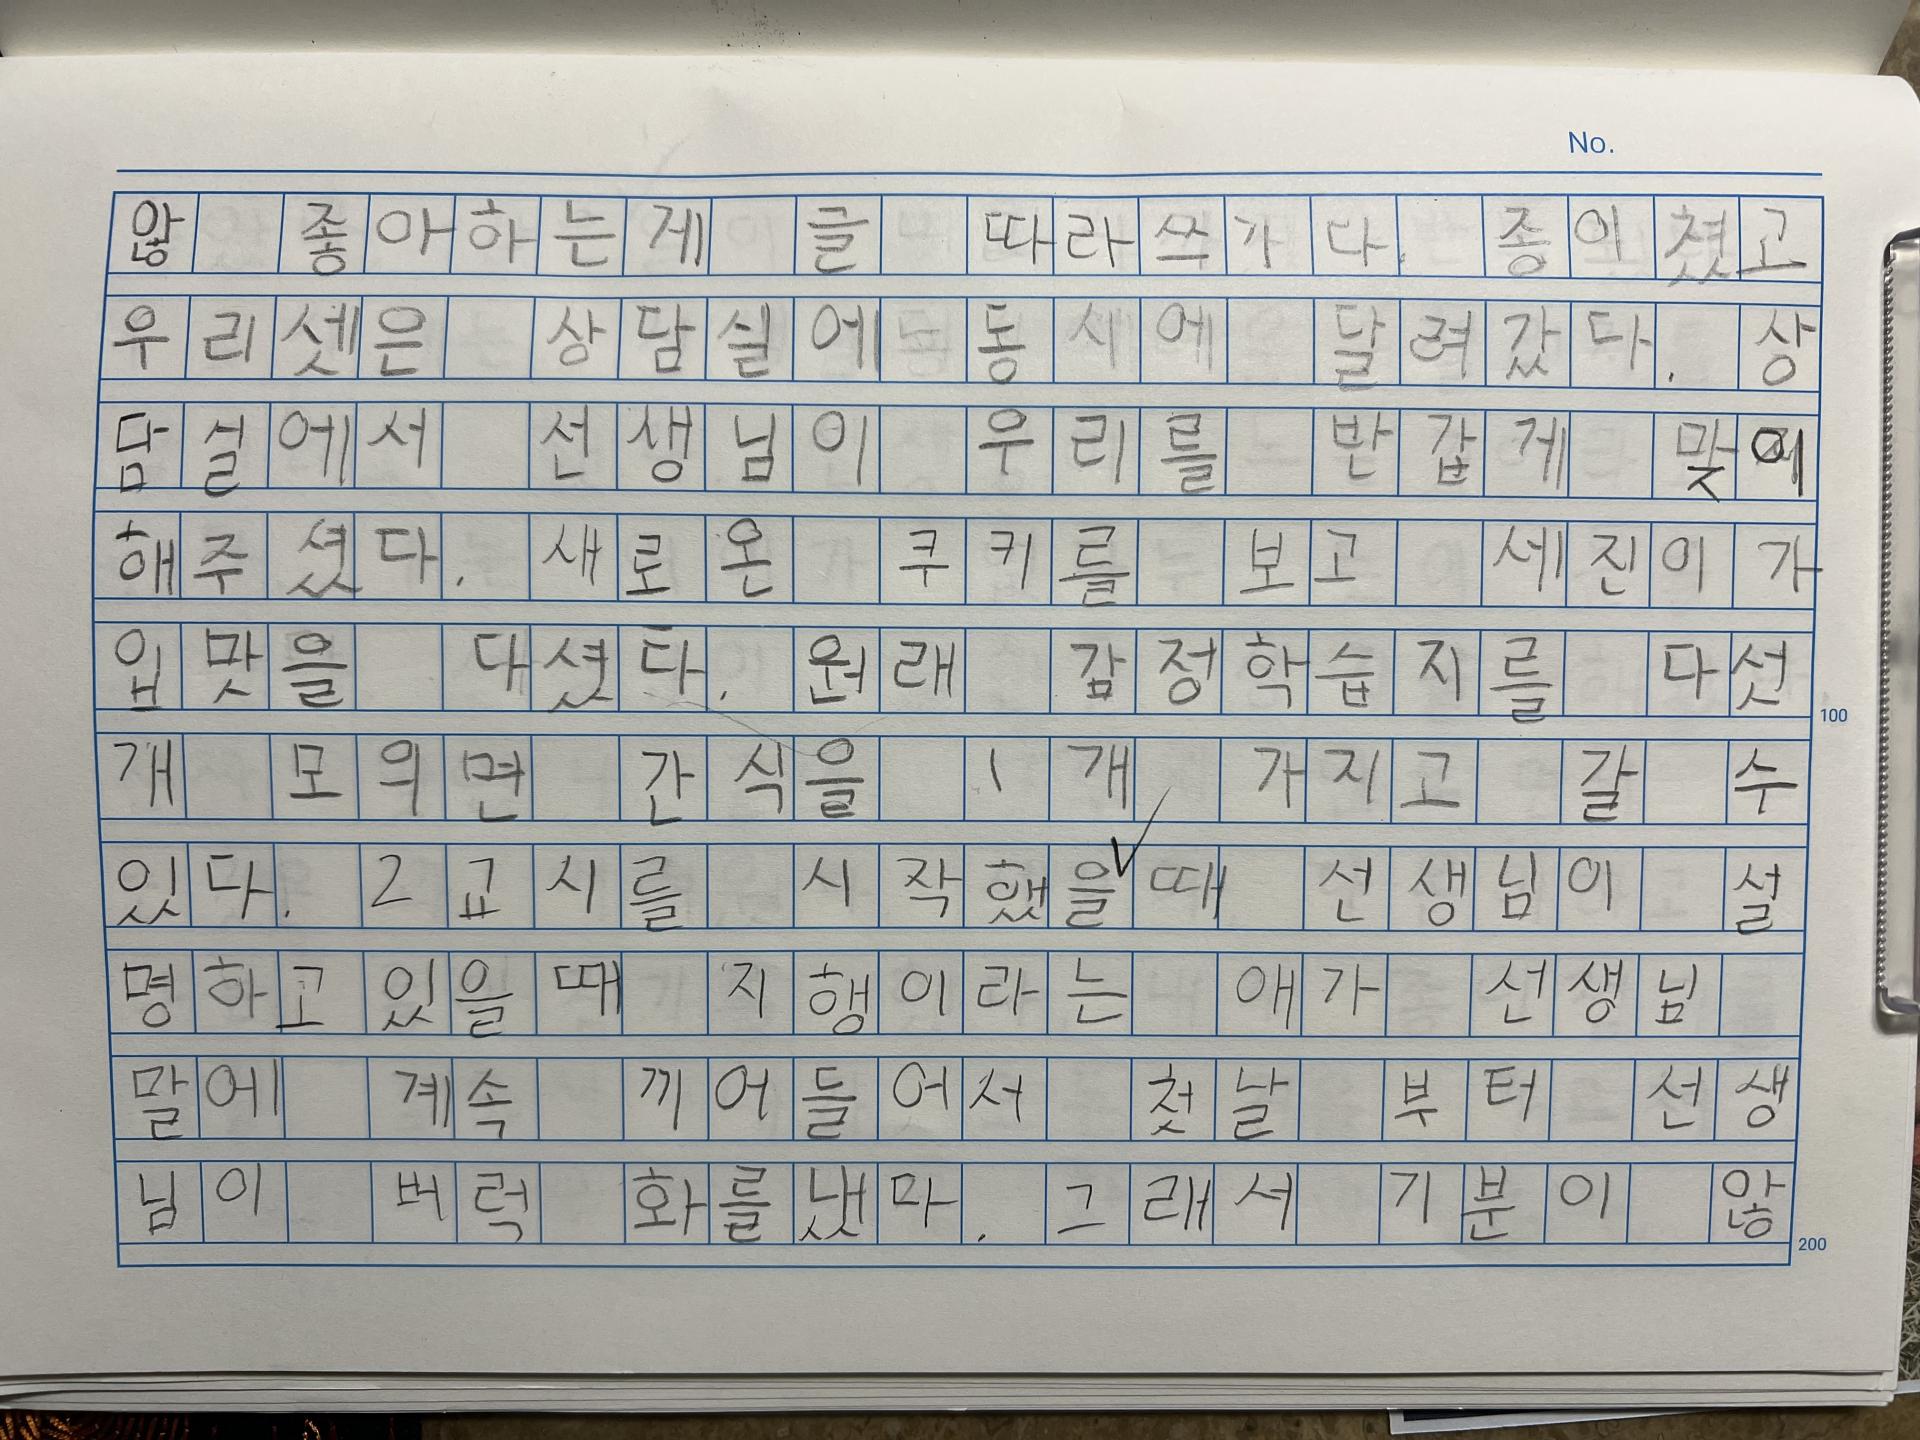 No.
않 좋아하는게 글 따라쓰가다. 종이쳤고
우리셋은 상담실에 동시에 달려갔다. 상
담실에서 선생님이 우리를 반갑게 맞이
해주셨다. 새로온 쿠키를 보고 세진이가
입맛을 다셨다. 원래 감정학습지를 다섯
개 모의면 간식을 1개 가지고 갈 수
있다. 2교시를 시작했을때 선생님이 설
명하고있을때 지행이라는 애가 선생님
말에 계속 끼어들어서 첫날 부터 선생
님이 버럭 화를냈다. 그래서 기분이 않
100
200